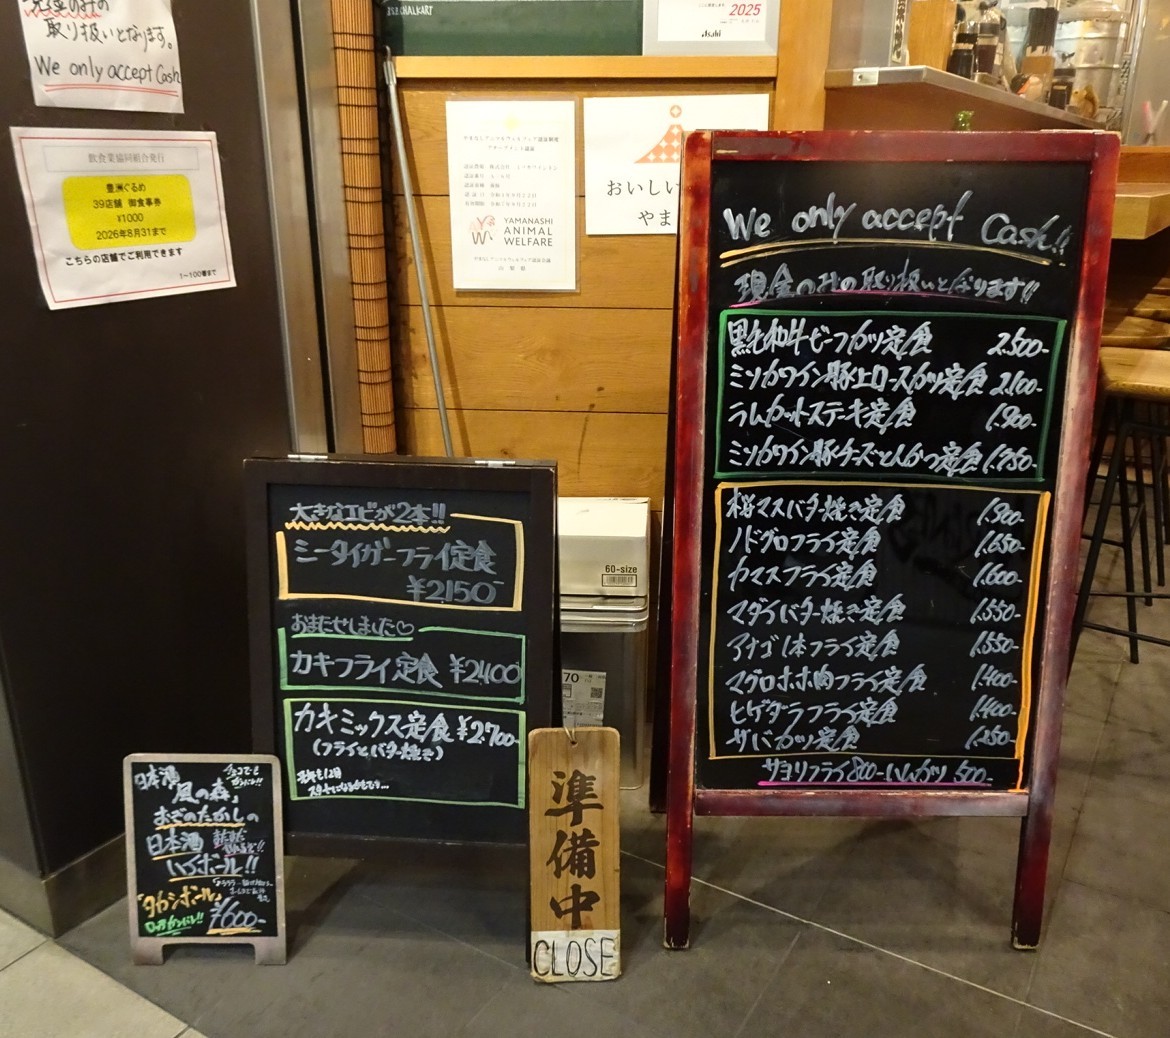 現金のみの
取り扱いとなります。
We only accept Cash
飲食業協同組合発行
豊洲ぐるめ
39店舗 御食事券
¥1000
2026年8月31まで
こちらの店舗でご利用できます
1～100番まで
CHALKART
2025
Asahi
YAMANASHI
ANIMAL
WELFARE
おいしい
やま
60-size
70
We only accept Cash!!
現金のみの取り扱いとなります!!
黒毛和牛ビーフカツ定食 2.500-
ミソカワイン豚上ロースカツ定食 2.100-
ラムカットステーキ定食 1.900-
ミソカワイン豚チーズとんかつ定食 1.750-
桜マスバター焼き定食 1.900-
ノドグロフライ定食 1.650-
カマスフライ定食 1.600-
マダイバター焼き定食 1.550-
アナゴ1本フライ定食 1.550-
マグロホホ肉フライ定食 1.400-
ヒゲダラフライ定食 1.400-
サバカツ定食 1.250-
サヨリフライ 800- いんがつ 500-
大きなエビが2本!!
ミータイガーフライ定食
¥2150-
おまたせしました♡
カキフライ定食 ¥2400
カキミックス定食 ¥2.700-
(フライとバター焼き)
日本酒
風の森」
おぞのたかしの
日本酒
ハイボール!!
「タカシボール」
¥600-
準備中
CLOSE